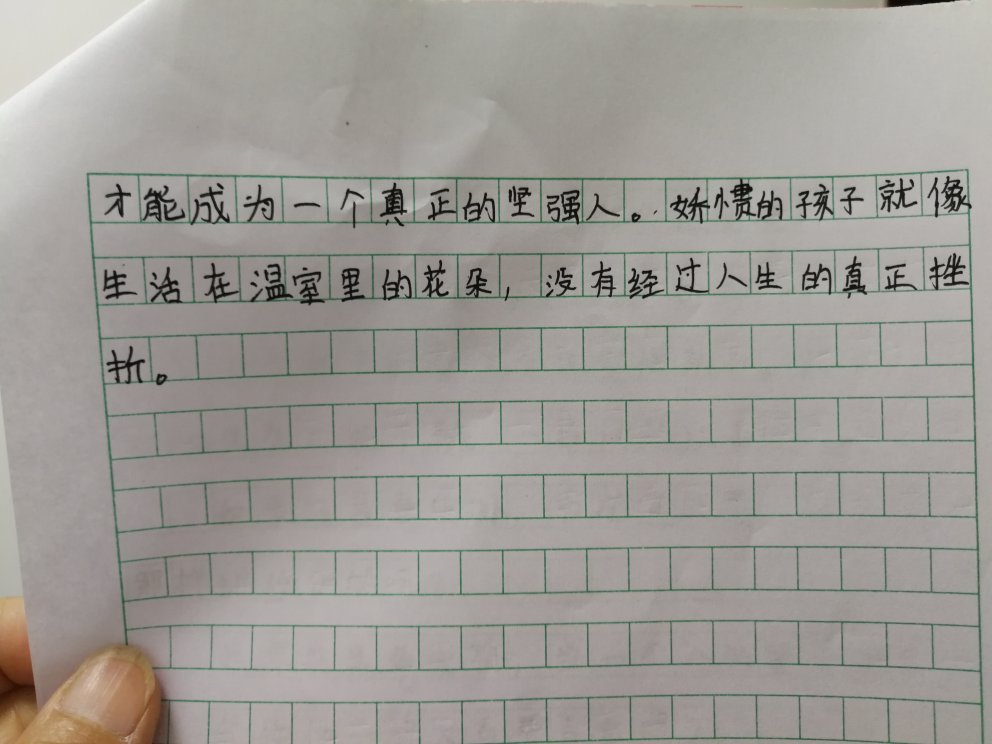 才能成为一个真正的坚强人。娇惯的孩子就像
生活在温室里的花朵,没有经过人生的真正挫
折。